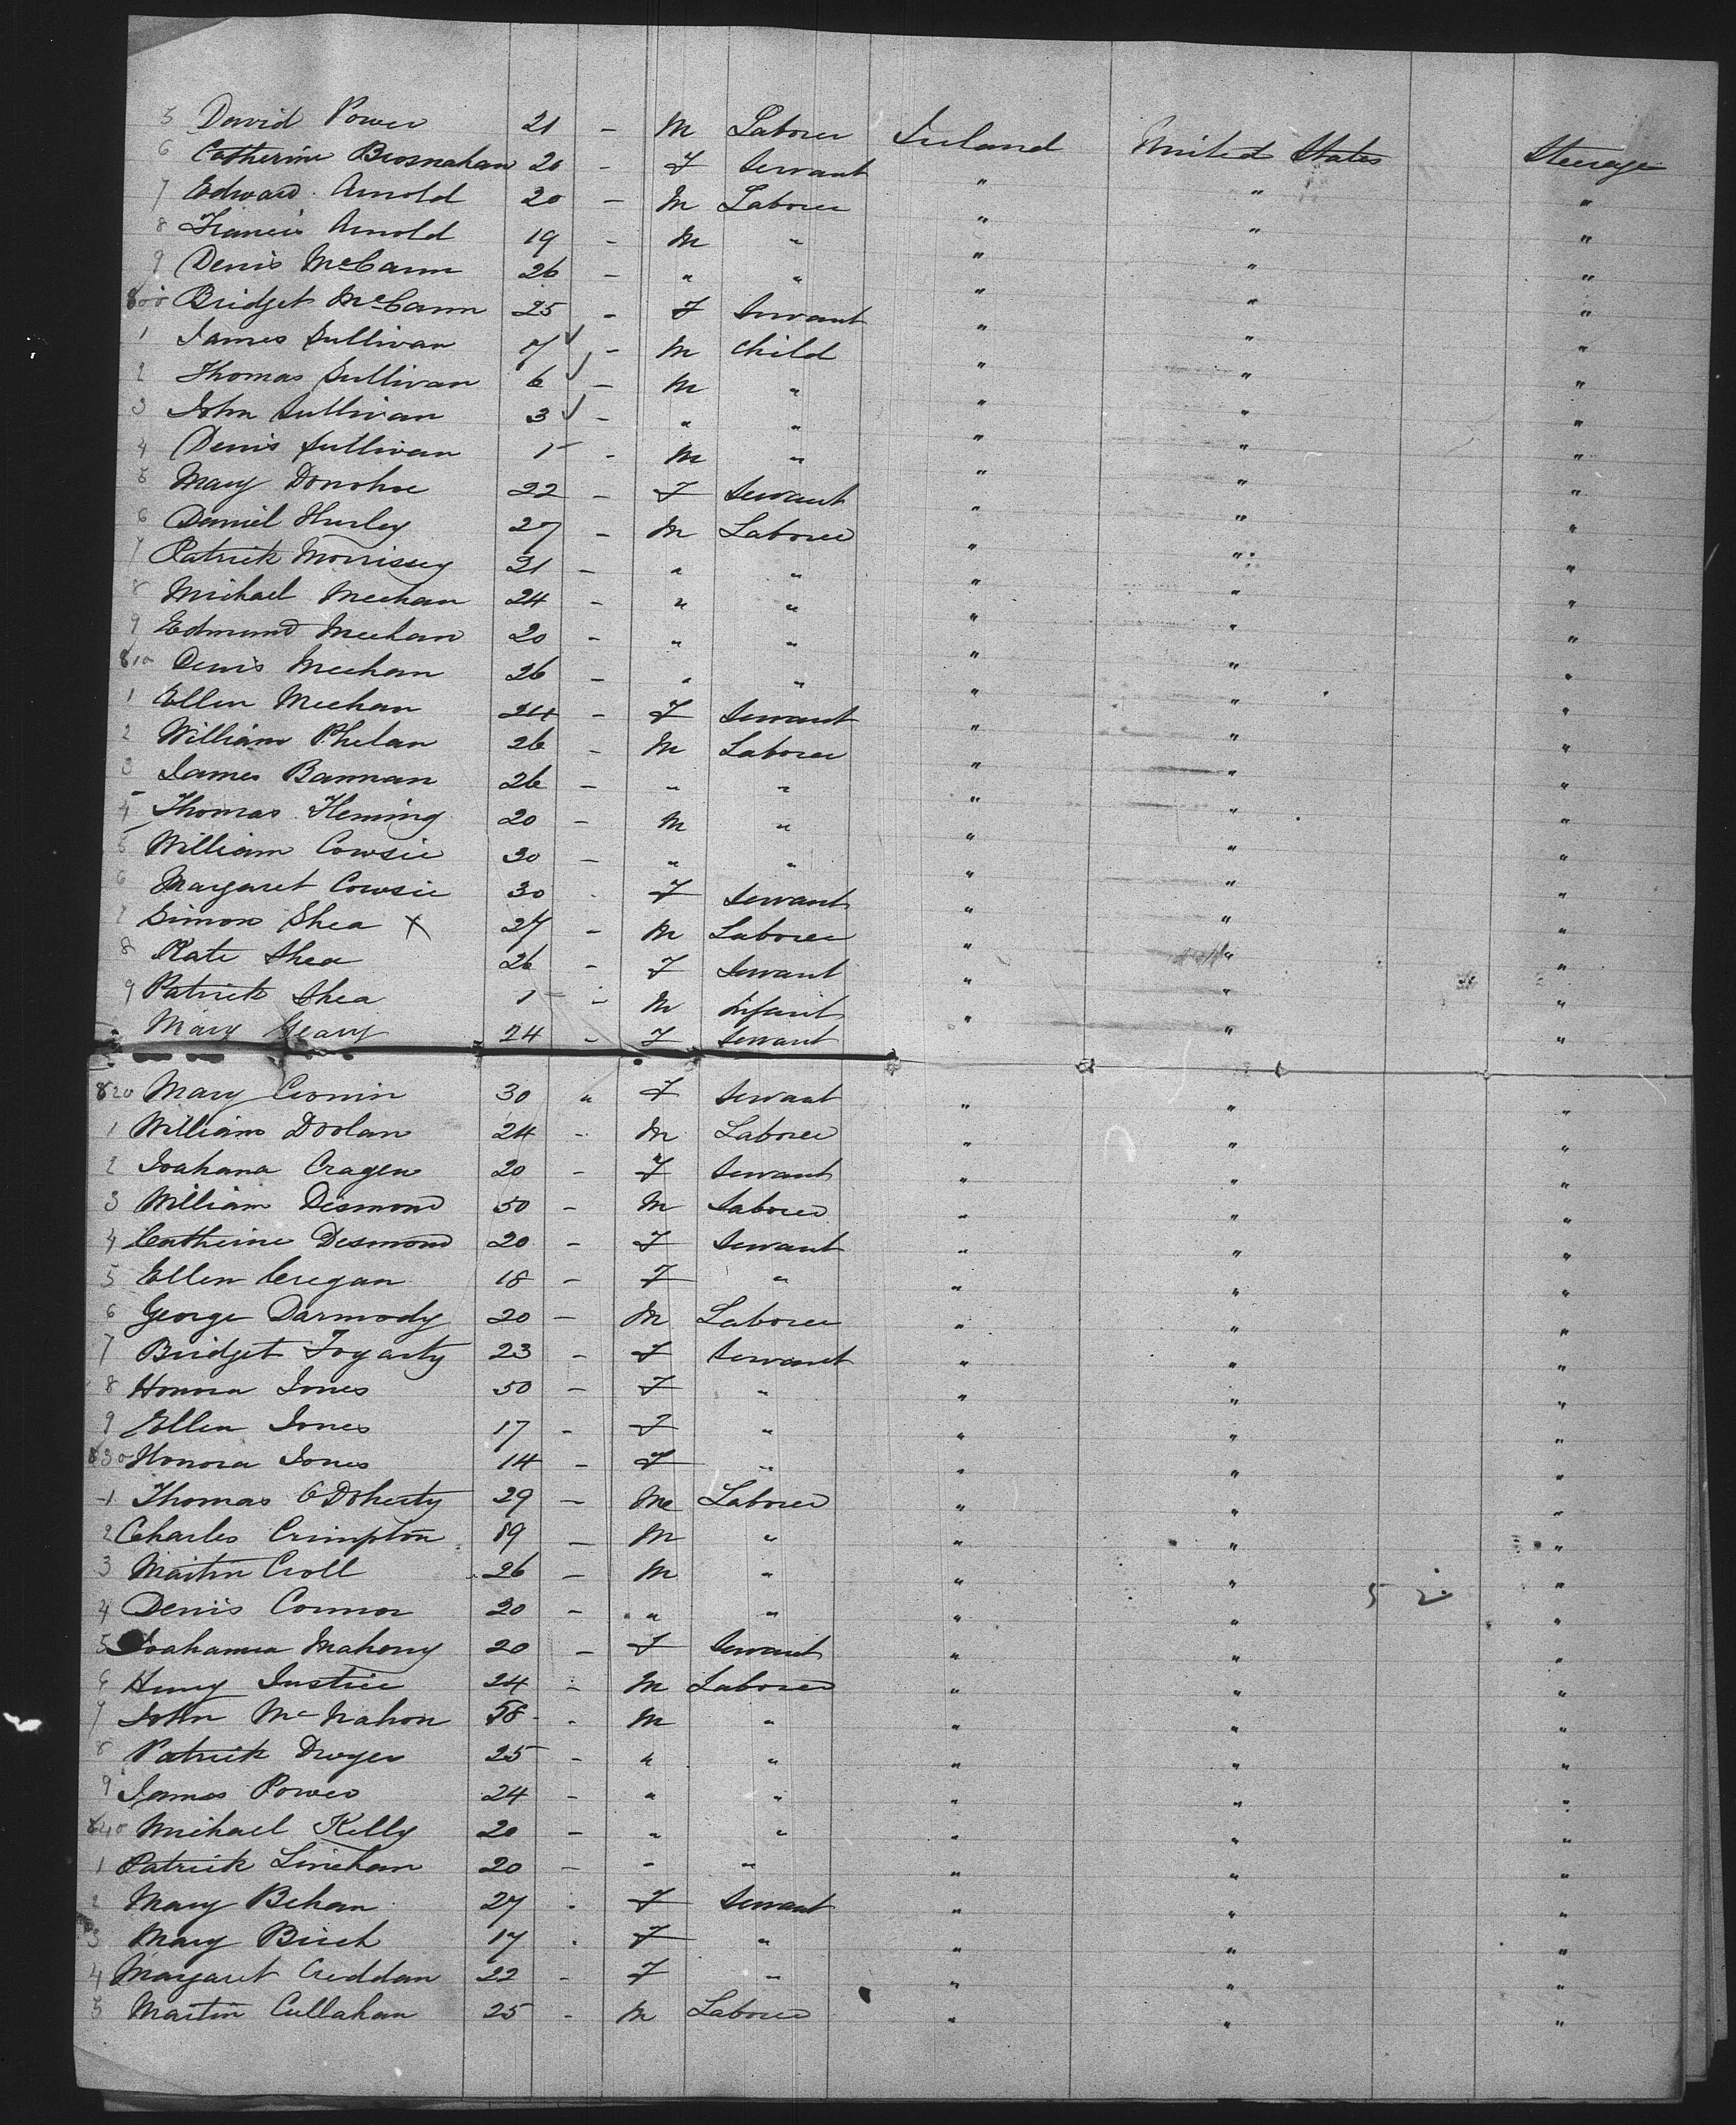 5 David Power 21 - M Laborer Ireland United States Steerage
6 Catherine Brosnahan 20 - F Servant " " "
7 Edward Arnold 20 - M Laborer " " "
8 Francis Arnold 19 - M " " " "
9 Denis McCann 26 - " " " " "
800 Bridget McCann 25 - F Servant " " "
1 James Sullivan 7 - M Child " " "
2 Thomas Sullivan 6 - M " " " "
3 John Sullivan 3 - " " " " "
4 Denis Sullivan 1 - M " " " "
5 Mary Donohoe 22 - F Servant " " "
6 Daniel Hurley 27 - M Laborer " " "
7 Patrick Morrissey 21 - " " " " "
8 Michael Meehan 24 - " " " " "
9 Edmund Meehan 20 - " " " " "
810 Denis Meehan 26 - " " " " "
1 Ellen Meehan 24 - F Servant " " "
2 William Phelan 26 - M Laborer " " "
3 James Bannan 26 - " " " " "
4 Thomas Fleming 20 - M " " " "
5 William Cowsie 30 - " " " " "
6 Margaret Cowsie 30 - F Servant " " "
7 Simon Shea X 27 - M Laborer " " "
8 Kate Shea 26 - F Servant " " "
9 Patrick Shea 1 - M Infant " " "
Mary Geary 24 - F Servant
820 Mary Cronin 30 " F Servant " " "
1 William Doolan 24 - M Laborer " " "
2 Joahana Cragen 20 - F Servant " " "
3 William Desmond 50 - M Laborer " " "
4 Catherine Desmond 20 - F Servant " " "
5 Ellen Cregan 18 - F " " " "
6 George Darmody 20 - M Laborer " " "
7 Bridget Fogarty 23 - F Servant " " "
8 Honora Jones 50 - F " " " "
9 Ellen Jones 17 - F " " " "
830 Honora Jones 14 - F " " " "
1 Thomas O'Doherty 29 - M Laborer " " "
2 Charles Crimpton 19 - M " " " "
3 Martin Croll 26 - M " " " "
4 Denis Connor 20 - " " " " "
5 Joahanna Mahony 20 - F Servant " " "
6 Henry Justice 24 - M Laborer " " "
7 John McMahon 58 - M " " " "
8 Patrick Dwyer 25 - " " " " "
9 James Power 24 - " " " " "
840 Michael Kelly 20 - " " " " "
1 Patrick Linehan 20 - " " " " "
2 Mary Behan 27 - F Servant " " "
3 Mary Birch 17 - F " " " "
4 Margaret Creddan 22 - F " " " "
5 Martin Cullahan 25 - M Laborer " " "